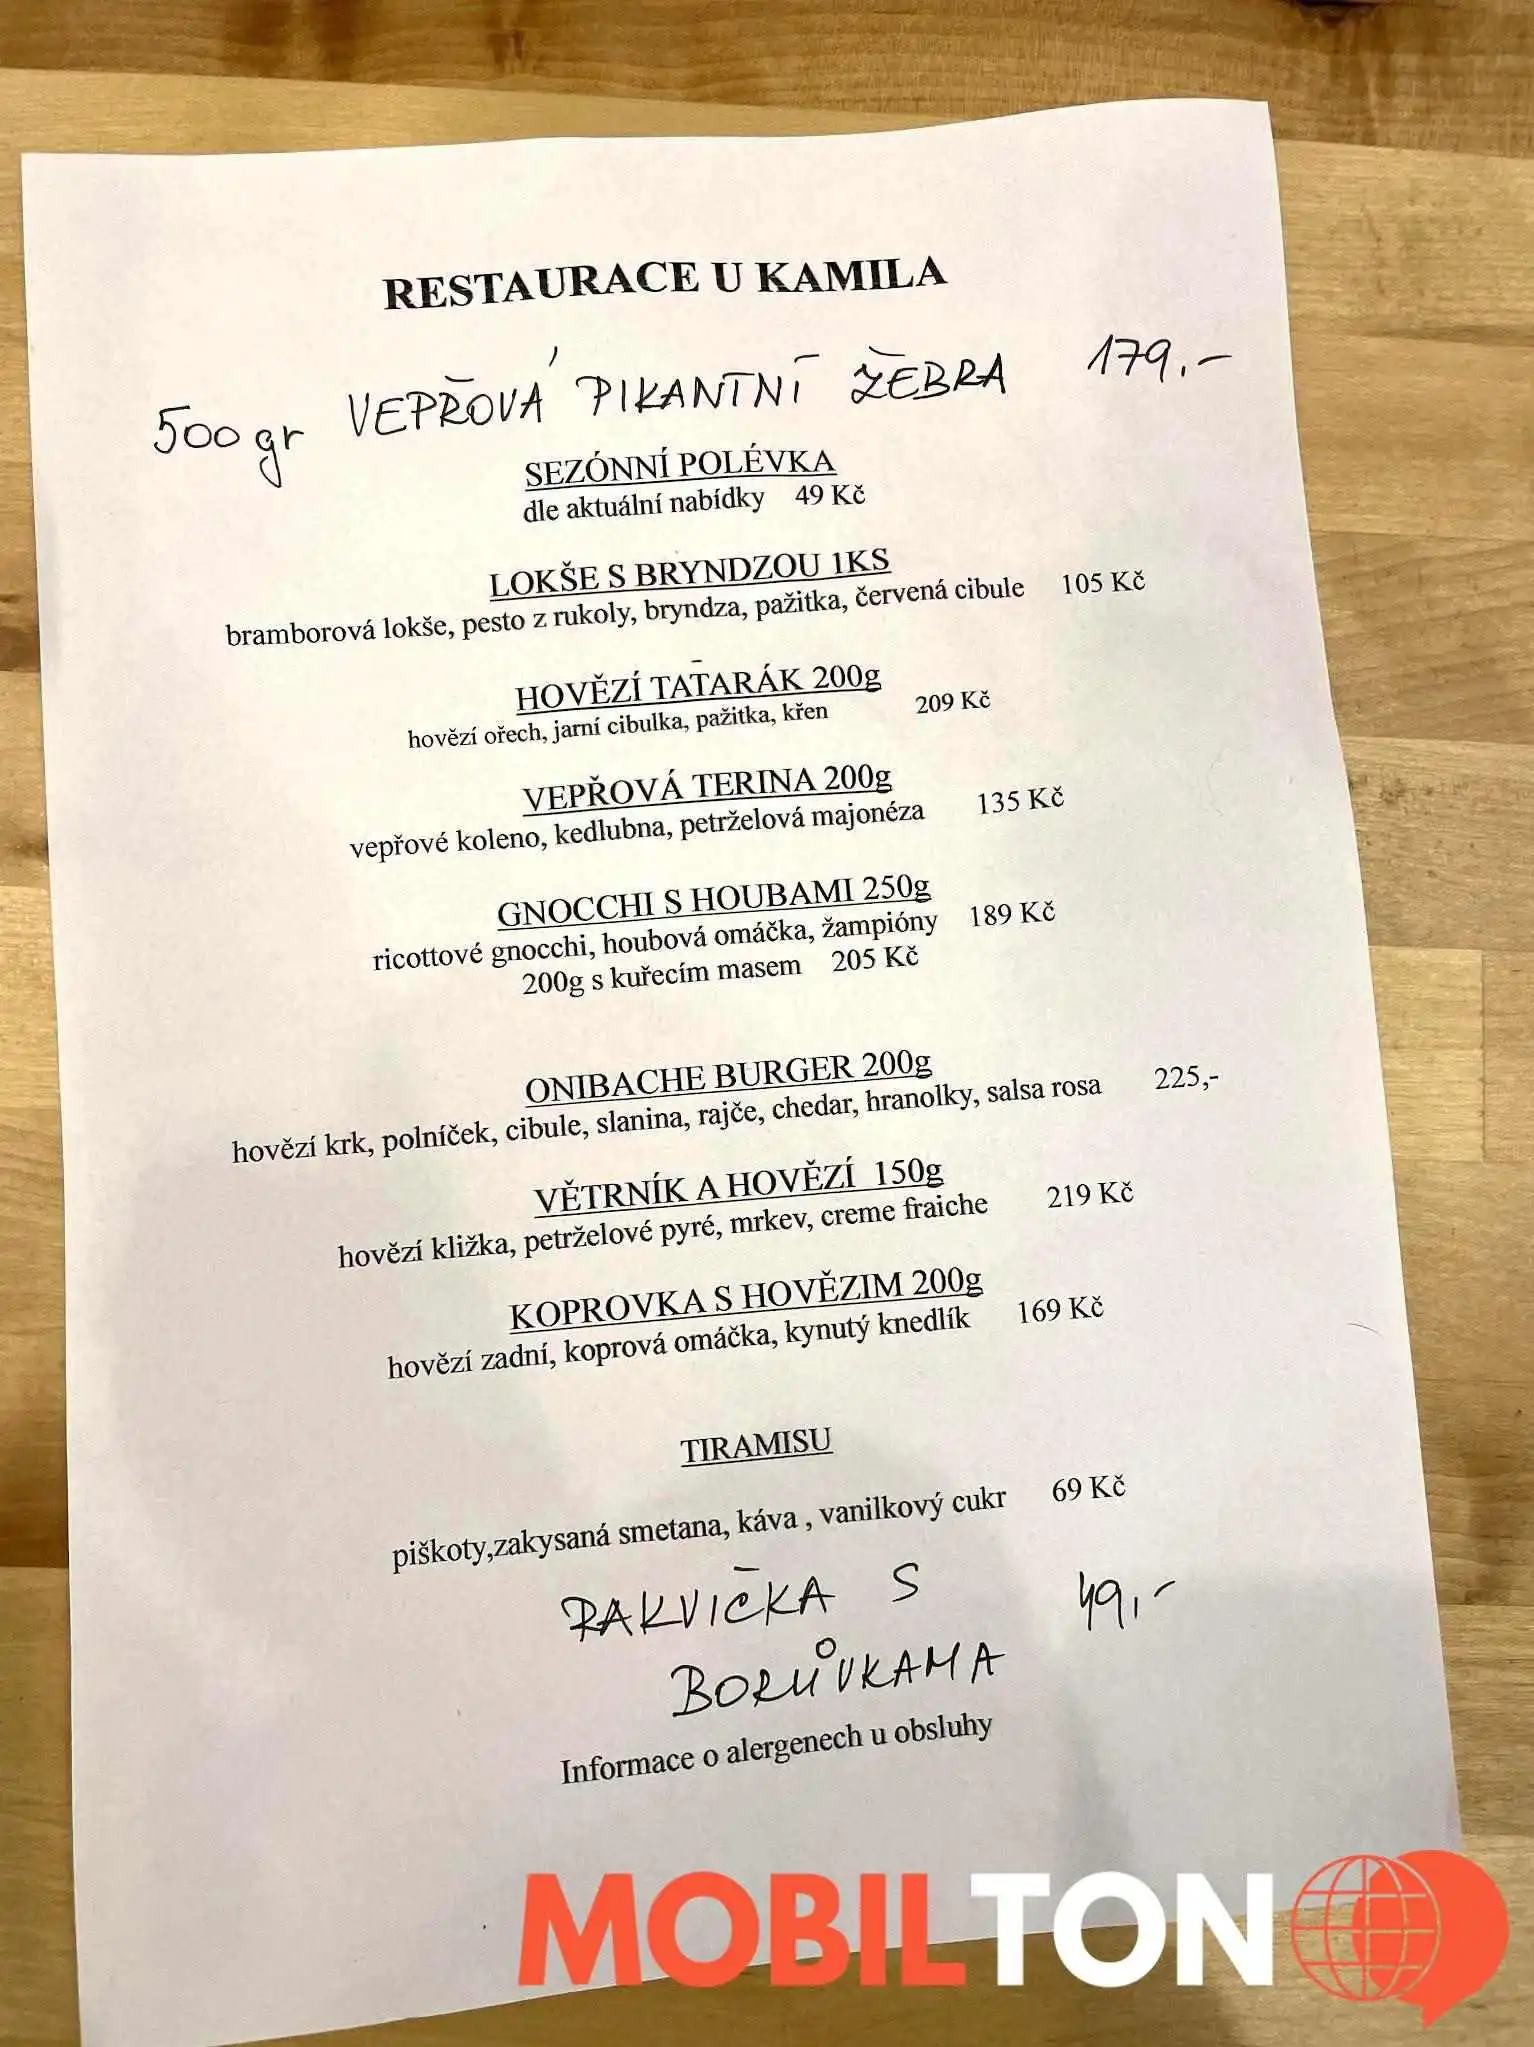 RESTAURACE U KAMILA
500gr VEPŘOVÁ PIKANTNÍ ŽEBRA 179,-
SEZÓNNÍ POLÉVKA
dle aktuální nabídky 49 Kč
LOKŠE S BRYNDZOU 1KS
bramborová lokše, pesto z rukoly, bryndza, pažitka, červená cibule 105 Kč
HOVĚZÍ TATARÁK 200g
hovězí ořech, jarní cibulka, pažitka, křen 209 Kč
VEPŘOVÁ TERINA 200g
vepřové koleno, kedlubna, petrželová majonéza 135 Kč
GNOCCHI S HOUBAMI 250g
ricottové gnocchi, houbová omáčka, žampióny 189 Kč
200g s kuřecím masem 205 Kč
ONIBACHE BURGER 200g
hovězí krk, polníček, cibule, slanina, rajče, chedar, hranolky, salsa rosa 225,-
VĚTRNÍK A HOVĚZÍ 150g
hovězí kližka, petrželové pyré, mrkev, creme fraiche 219 Kč
KOPROVKA S HOVĚZIM 200g
hovězí zadní, koprová omáčka, kynutý knedlík 169 Kč
TIRAMISU
piškoty,zakysaná smetana, káva , vanilkový cukr 69 Kč
RAKVIČKA S 49,-
BORŮVKAMA
Informace o alergenech u obsluhy
MOBILTON